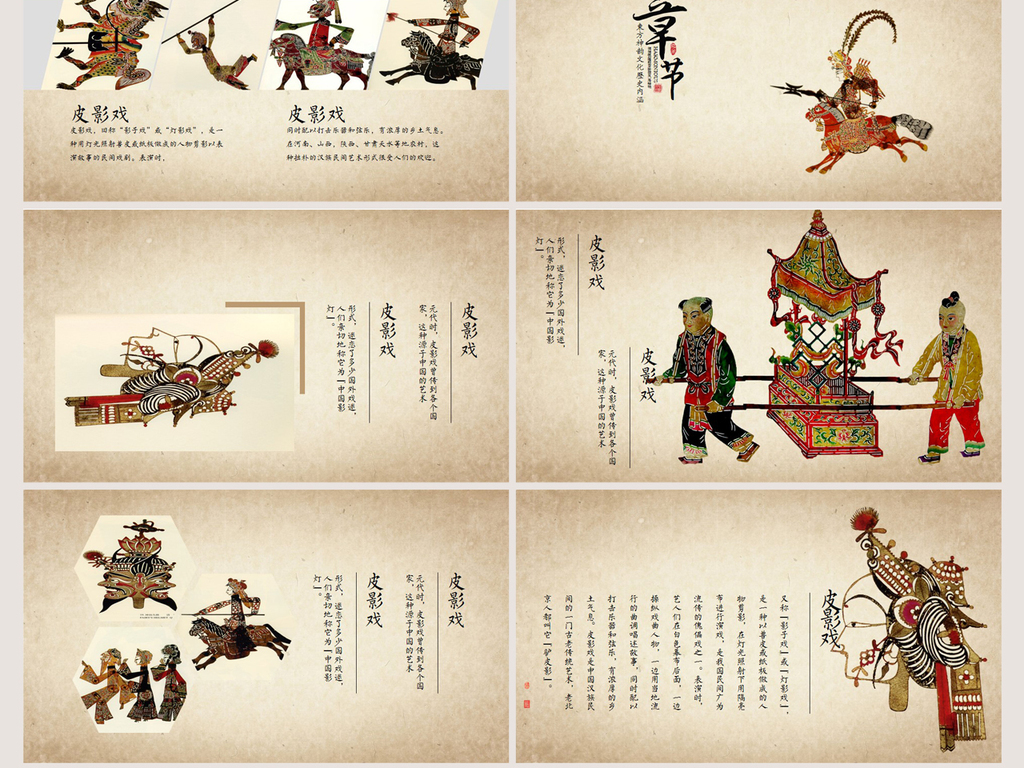 皮影戏
皮影戏，旧称“影子戏”或“灯影戏”，是一
种用灯光照射兽皮或纸板做成的人物剪影以表
演故事的民间戏剧。表演时，
皮影戏
同时配以打击乐器和弦乐，有浓厚的乡土气息。
在河南、山西、陕西、甘肃天水等地农村，这
种拙朴的汉族民间艺术形式很受人们的欢迎。
章节
东方神韵文化歷史内涵
皮影戏
元代时，皮影戏曾传到各个国
家，这种源于中国的艺术
皮影戏
形式，迷恋了多少国外戏迷，
人们亲切地称它为「中国影
灯」。
皮影戏
形式，迷恋了多少国外戏迷，
人们亲切地称它为「中国影
灯」。
皮影戏
元代时，皮影戏曾传到各个国
家，这种源于中国的艺术
皮影戏
元代时，皮影戏曾传到各个国
家，这种源于中国的艺术
皮影戏
形式，迷恋了多少国外戏迷，
人们亲切地称它为「中国影
灯」。
皮影戏
又称「影子戏」或「灯影戏」，
是一种以兽皮或纸板做成的人
物剪影，在灯光照射下用隔亮
布进行演戏，是我国民间广为
流传的傀儡戏之一。表演时，
艺人们在白色幕布后面，一边
操纵戏曲人物，一边用当地流
行的曲调唱述故事，同时配以
打击乐器和弦乐，有浓厚的乡
土气息。皮影戏是中国汉族民
间的一门古老传统艺术，老北
京人都叫它「驴皮影」。